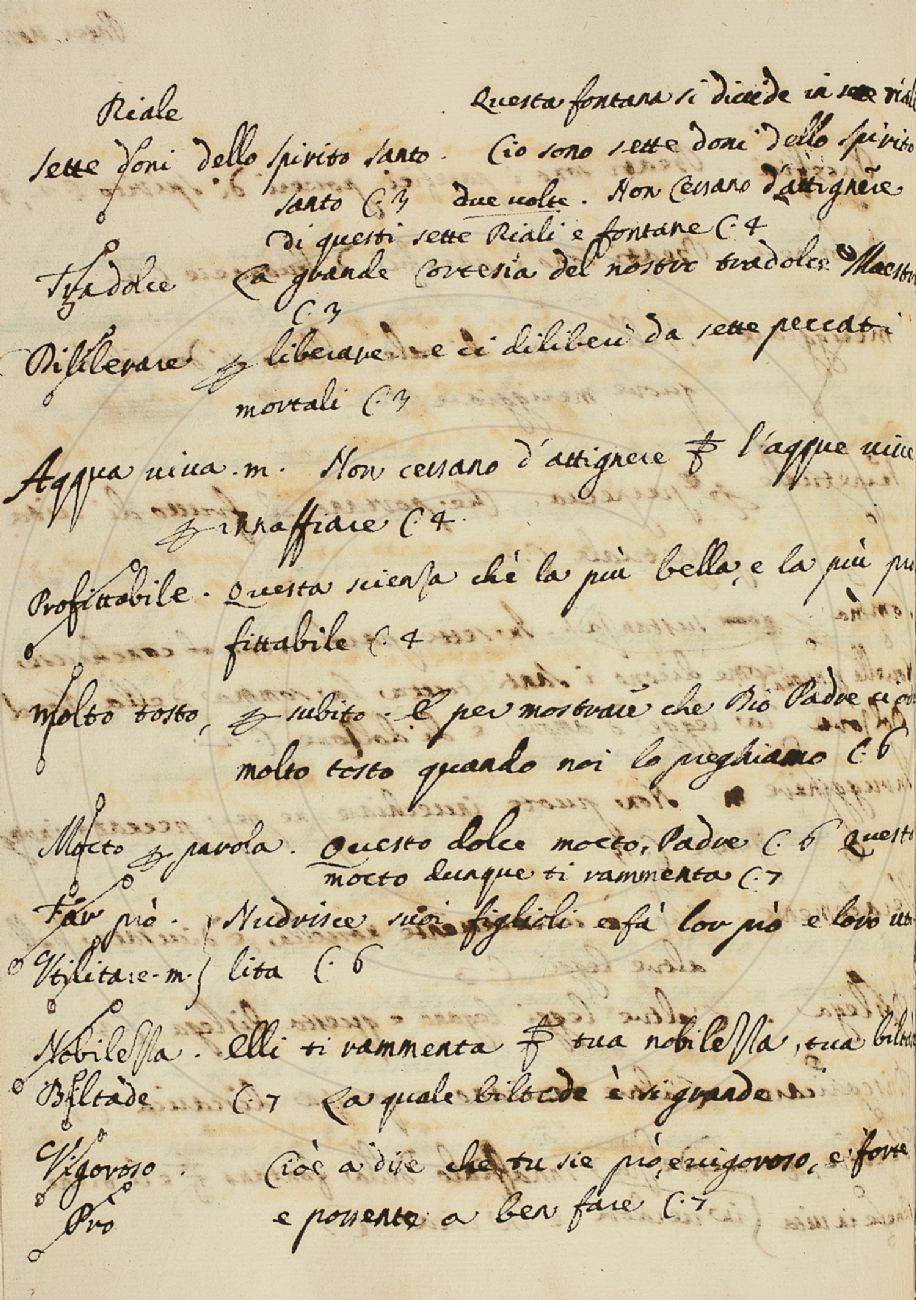 Riale Questa fontana si divide in sette riali
sette doni dello spirito santo. Cio sono sette doni dello spirito
santo C. 3 due volte. Non cessano d'attignere
di questi sette Riali e fontane C. 4
Tradolce La grande Cortesia del nostro tradolce Maestro
C. 3
Diliberare liberare e ci diliberi da sette peccati
mortali C. 3
Acqua viva. m. Non cessano d'attignere l'acque vive
innaffiare C. 4.
Profittabile. Questa scienza ch'è la più bella, e la più pro
fittabile C. 4
Molto tosto, subito. E per mostrare che Dio Padre ci
molto tosto quando noi lo preghiamo C. 6
Motto parola. Questo dolce motto, Padre C. 6 Questo
motto dunque ti rammenta C. 7
Far prò. Nudrisce suoi figlioli e fà lor prò e loro uti
Utilitare. m. lita C. 6
Nobilezza. Elli ti rammenta tua nobilezza, tua biltà
Biltade C. 7 La quale biltade è si grande
Vigoroso. Cioè a dire che tu sie prò, e vigoroso, e forte
Prò e possente a ben fare C. 7